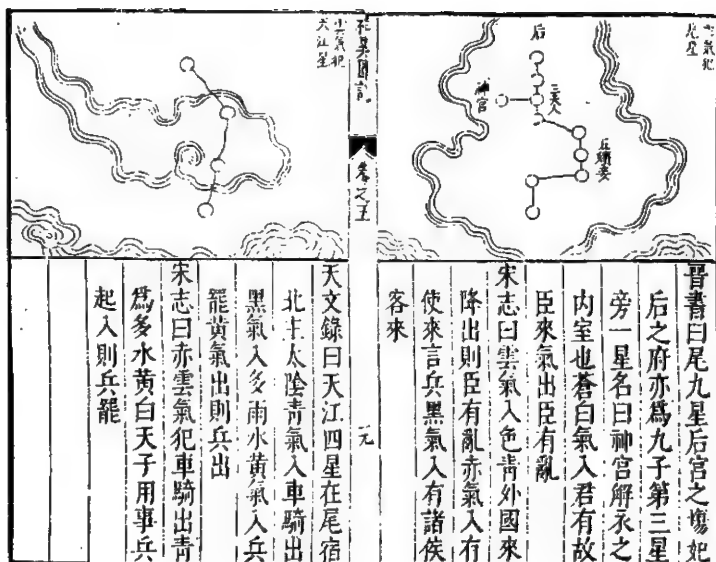 雲氣犯
尾星
后
三夫人
神宮
五嬪妾
晉書曰尾九星后宮之塲妃
后之府亦爲九子第三星
旁一星名曰神宮解衣之
內室也蒼白氣入君有故
臣來氣出臣有亂
宋志曰雲氣入色靑外國來
降出則臣有亂赤氣入有
使來言兵黑氣入有諸侯
客來
卷之五
雲氣犯
天江星
天文錄曰天江四星在尾宿
北主太陰靑氣入車騎出
黑氣入多雨水黃氣入兵
罷黃氣出則兵出
宋志曰赤雲氣犯車騎出靑
爲多水黃白天子用事兵
起入則兵罷